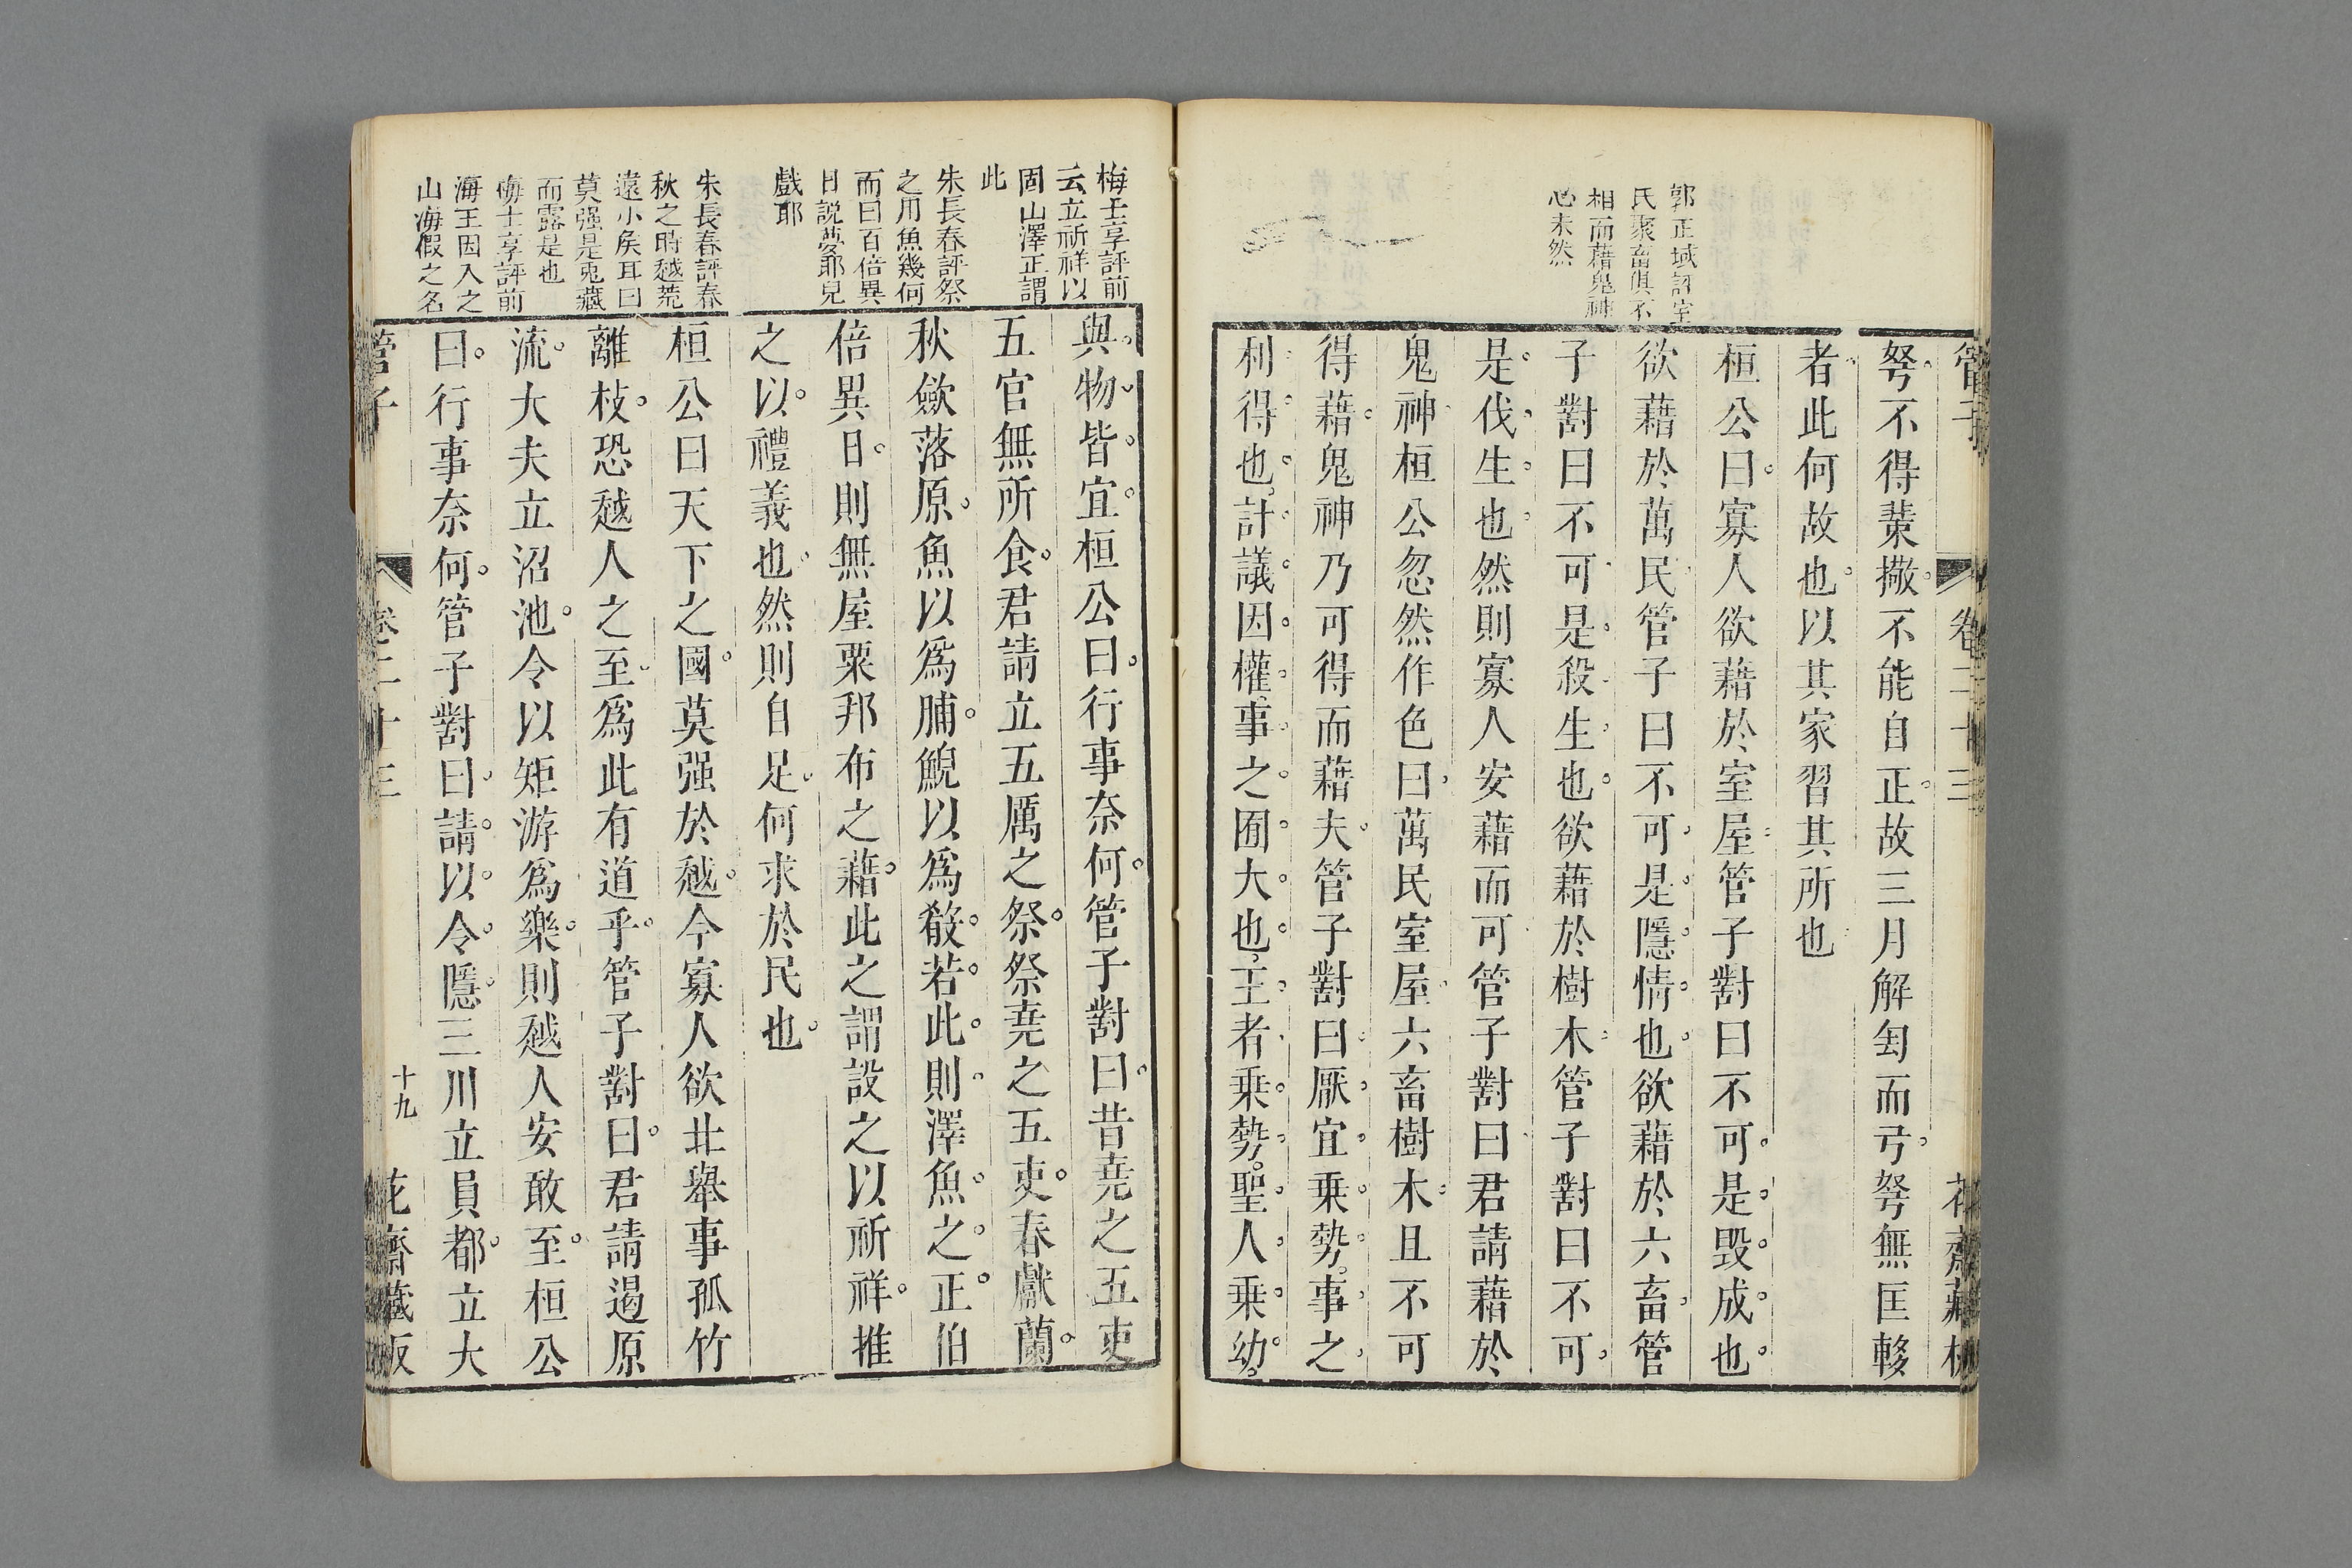 管子
卷二十三
花齋藏板
弩不得棐撒不能自正故三月解匃而弓弩無匡䡔
者此何故也以其家習其所也
桓公曰寡人欲藉於室屋管子對曰不可是毀成也
欲藉於萬民管子曰不可是隱情也欲藉於六畜管
子對曰不可是殺生也欲藉於樹木管子對曰不可
是伐生也然則寡人安藉而可管子對曰君請藉於
鬼神桓公忽然作色曰萬民室屋六畜樹木且不可
得藉鬼神乃可得而藉夫管子對曰厭宜乘勢事之
利得也計議因權事之囿大也王者乘勢聖人乘幼
郭正域評室
氏聚畜俱不
相而藉鬼神
必未然
與物皆宜桓公曰行事奈何管子對曰昔堯之五吏
五官無所食君請立五厲之祭祭堯之五吏春獻蘭
秋斂落原魚以爲脯鯢以爲殽若此則澤魚之正伯
倍異日則無屋粟邦布之藉此之謂設之以祈祥推
之以禮義也然則自足何求於民也
桓公曰天下之國莫强於越今寡人欲北舉事孤竹
離枝恐越人之至爲此有道乎管子對曰君請遏原
流大夫立沼池令以矩游爲樂則越人安敢至桓公
曰行事奈何管子對曰請以令隱三川立員都立大
梅士享評前
云立祈祥以
固山澤正謂
此
朱長春評祭
之用魚幾何
而曰百倍異
日說夢耶兒
戲耶
朱長春評春
秋之時越荒
遠小矦耳曰
莫强是兎藏
而露是也
梅士享評前
海王因入之
山海假之名
管子
卷二十三
十九
花齋藏板